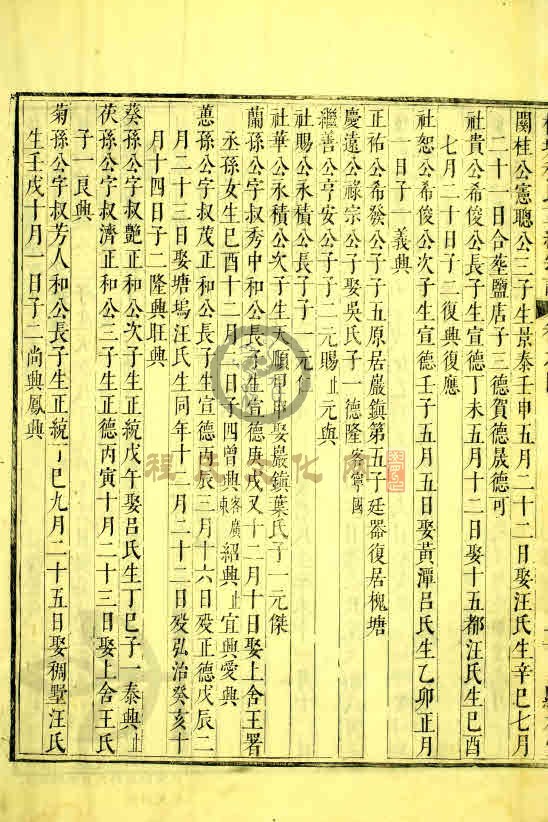 關桂公憲聰公三子生景泰壬申五月二十二日娶汪氏生辛巳七月
二十一日合葬鹽店子三德賀德晟德可
社貴公希俊公長子生宣德丁未五月十二日娶十五都汪氏生己酉
七月二十日子二復興復應
社恕公希俊公次子生宣德壬子五月五日娶黃潭呂氏生乙卯正月
一日子一義興
正祐公希發公子子五原居巖鎮第五子廷器復居槐塘
慶遠公祿宗公子娶吳氏子一德隆客寧國
繼善公亨安公子子二元賜止元與
社賜公永積公長子子一元仁
社華公永積公次子生天順甲申娶巖鎮葉氏子一元傑
蘭孫公字叔秀中和公長子生宣德庚戌又十二月十日娶上舍王署
丞孫女生己酉十二月二日子四曾興客廣東紹興止宜興愛興
蕙孫公字叔茂正和公長子生宣德丙辰三月十六日歿正德戊辰二
月二十三日娶塘塢汪氏生同年十一月二十二日歿弘治癸亥十
月十四日子二隆興旺興
葵孫公字叔艷正和公次子生正統戊午娶呂氏生丁巳子一泰興止
茯孫公字叔濟正和公三子生正德丙寅十月二十三日娶上舍王氏
子一良興
菊孫公字叔芳人和公長子生正統丁巳九月二十五日娶稠墅汪氏
生壬戌十月一日子二尚興鳳興
程氏文化网